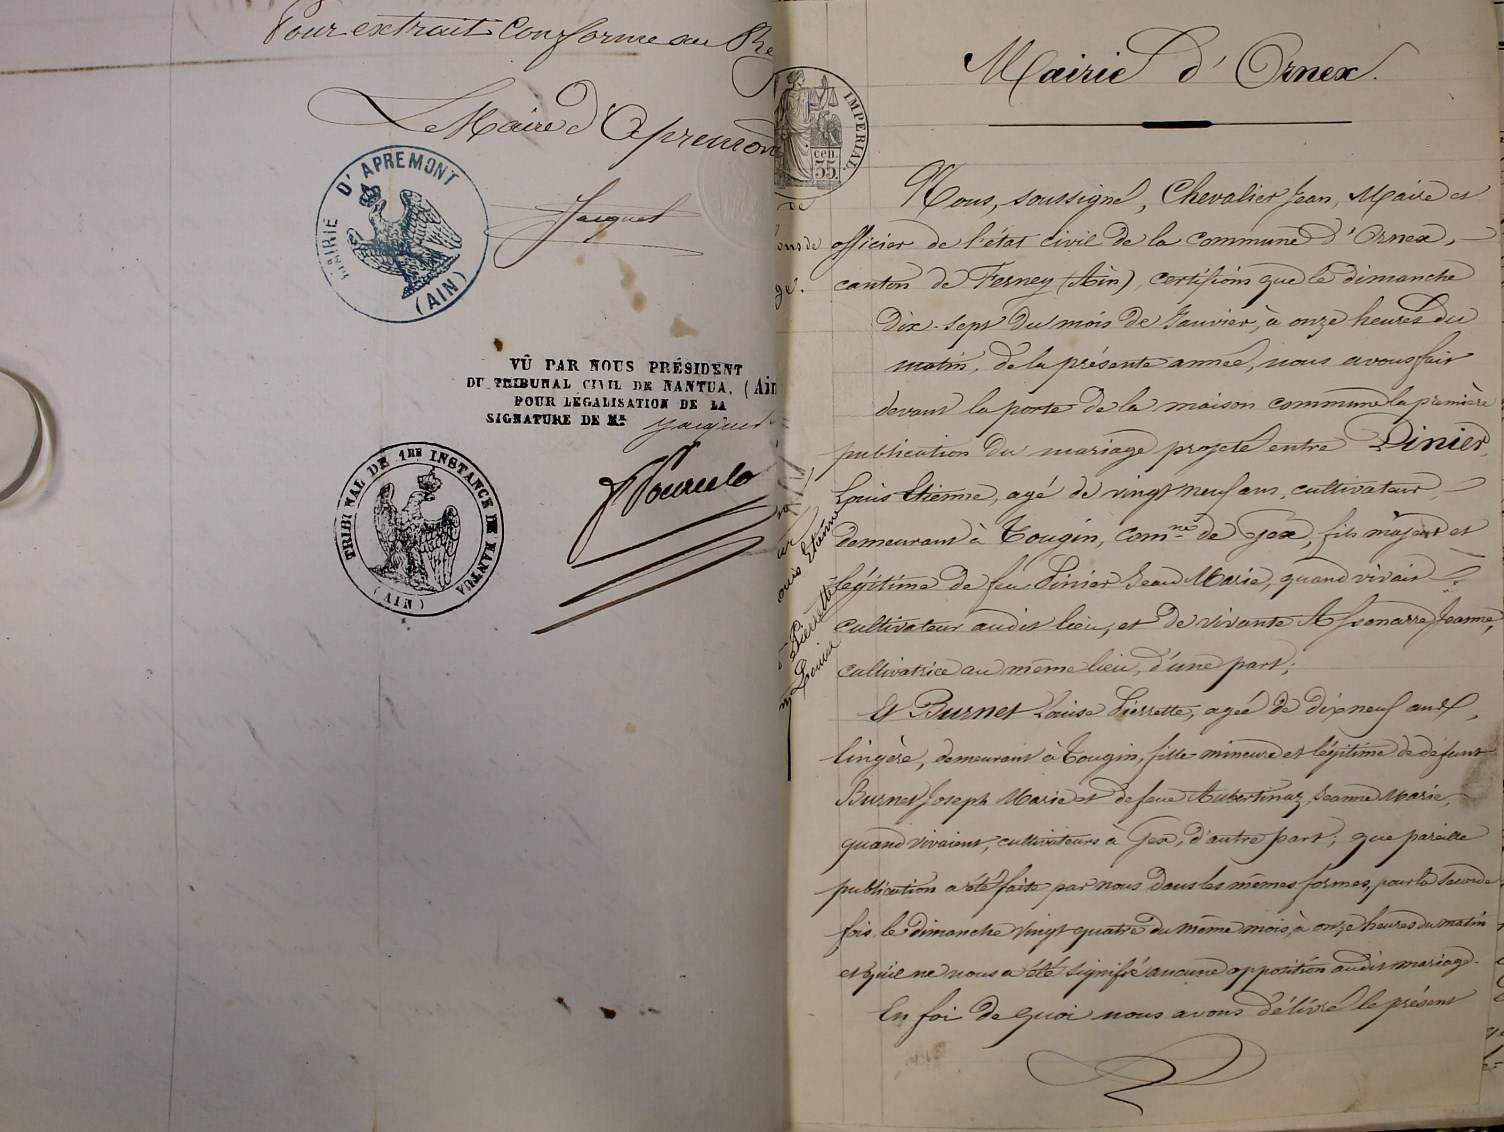 Pour extrait conforme au Re
Le Maire d'Apremont
MAIRIE D'APREMONT
(AIN)
Jacquet
VÛ PAR NOUS PRÉSIDENT
DU TRIBUNAL CIVIL DE NANTUA, (Ain
POUR LÉGALISATION DE LA
SIGNATURE DE Mr. Jacquet
TRIBUNAL DE 1RE INSTANCE DE NANTUA
(AIN)
IMPERIAL
55 cen.
de
ons de
ge.
ouis Etienne
Pierrette
Louise
Mairie d'Ornex.
Nous, soussigné, Chevalier Jean, Maire et
officier de l'état civil de la commune d'Ornex,
canton de Ferney (Ain), certifions que le dimanche
dix-sept du mois de Janvier, à onze heures du
matin, de la présente année, nous avons fait
devant la porte de la maison commune la première
publication du mariage projeté entre Pinier
Louis Etienne, agé de vingt neuf ans, cultivateur,
demeurant à Tougin, comne de Gex, fils majeur et
légitime de feu Pinier Jean Marie, quand vivait
cultivateur audit lieu, et de vivante Assonarre Jeanne,
cultivatrice au même lieu, d'une part;
Et Burnet Louise Pierrette, agée de dix neuf ans,
lingère, demeurant à Tougin, fille mineure et légitime de défunt
Burnet Joseph Marie et de feue Aubertinaz Jeanne Marie,
quand vivaient, cultivateurs à Gex, d'autre part; que pareille
publication a été faite par nous dans les mêmes formes, pour la seconde
fois le dimanche vingt quatre du même mois, à onze heures du matin
et qu'il ne nous a été signifié aucune opposition audit mariage.
En foi de quoi nous avons délivré le présent